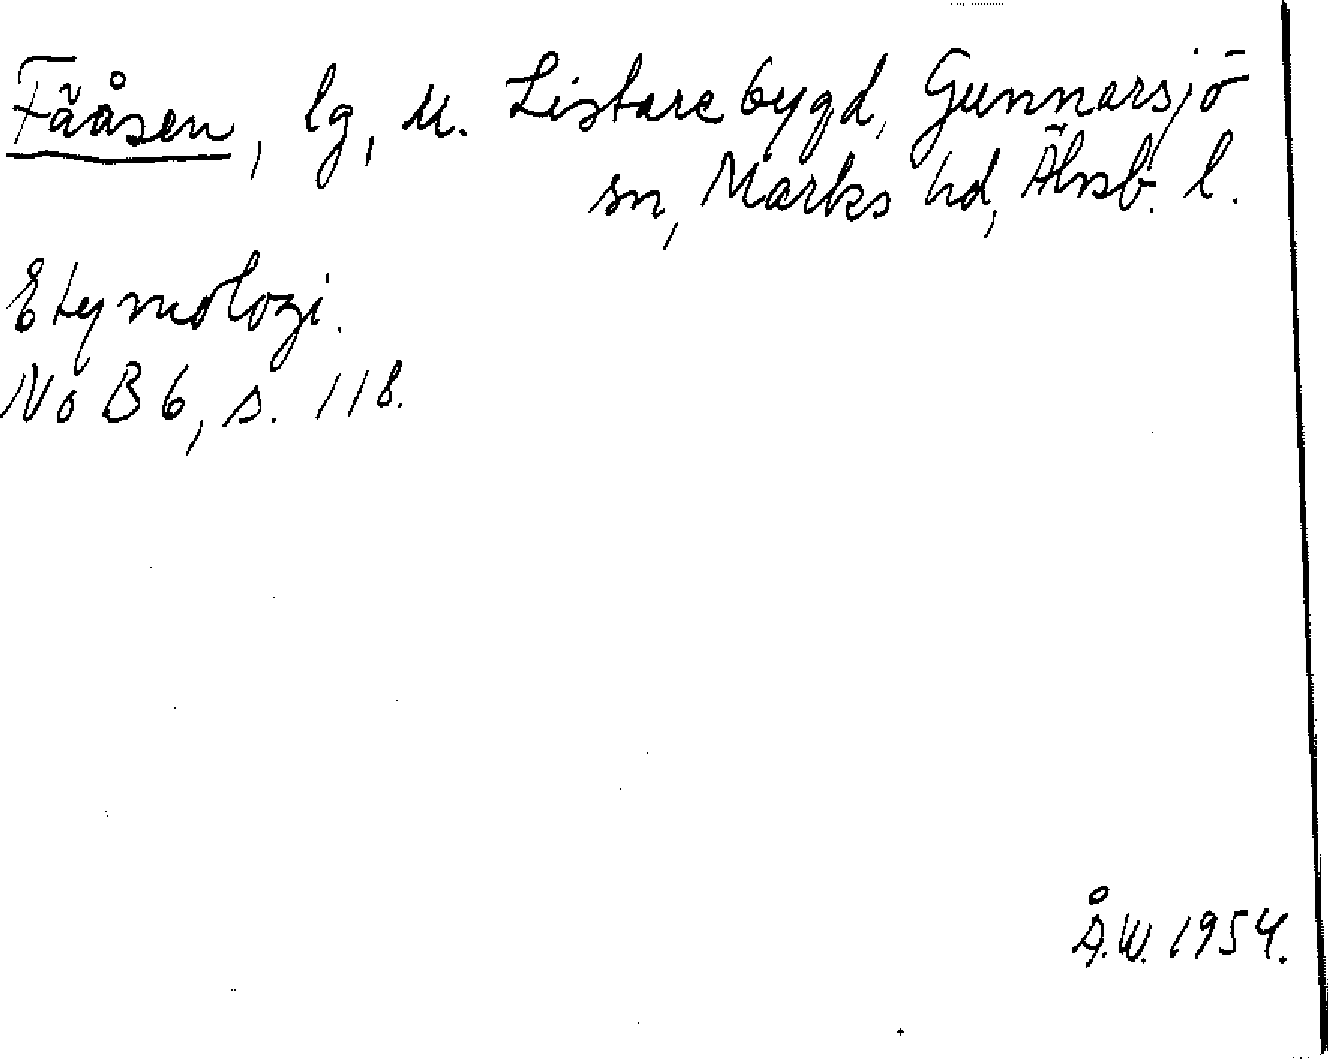 Fäåsen, lg, u. Listarebygd, Gunnarsjö
sn, Marks hd, Älvsb. l.
Etymologi.
NoB 6, s. 118.
Å.W. 1954.